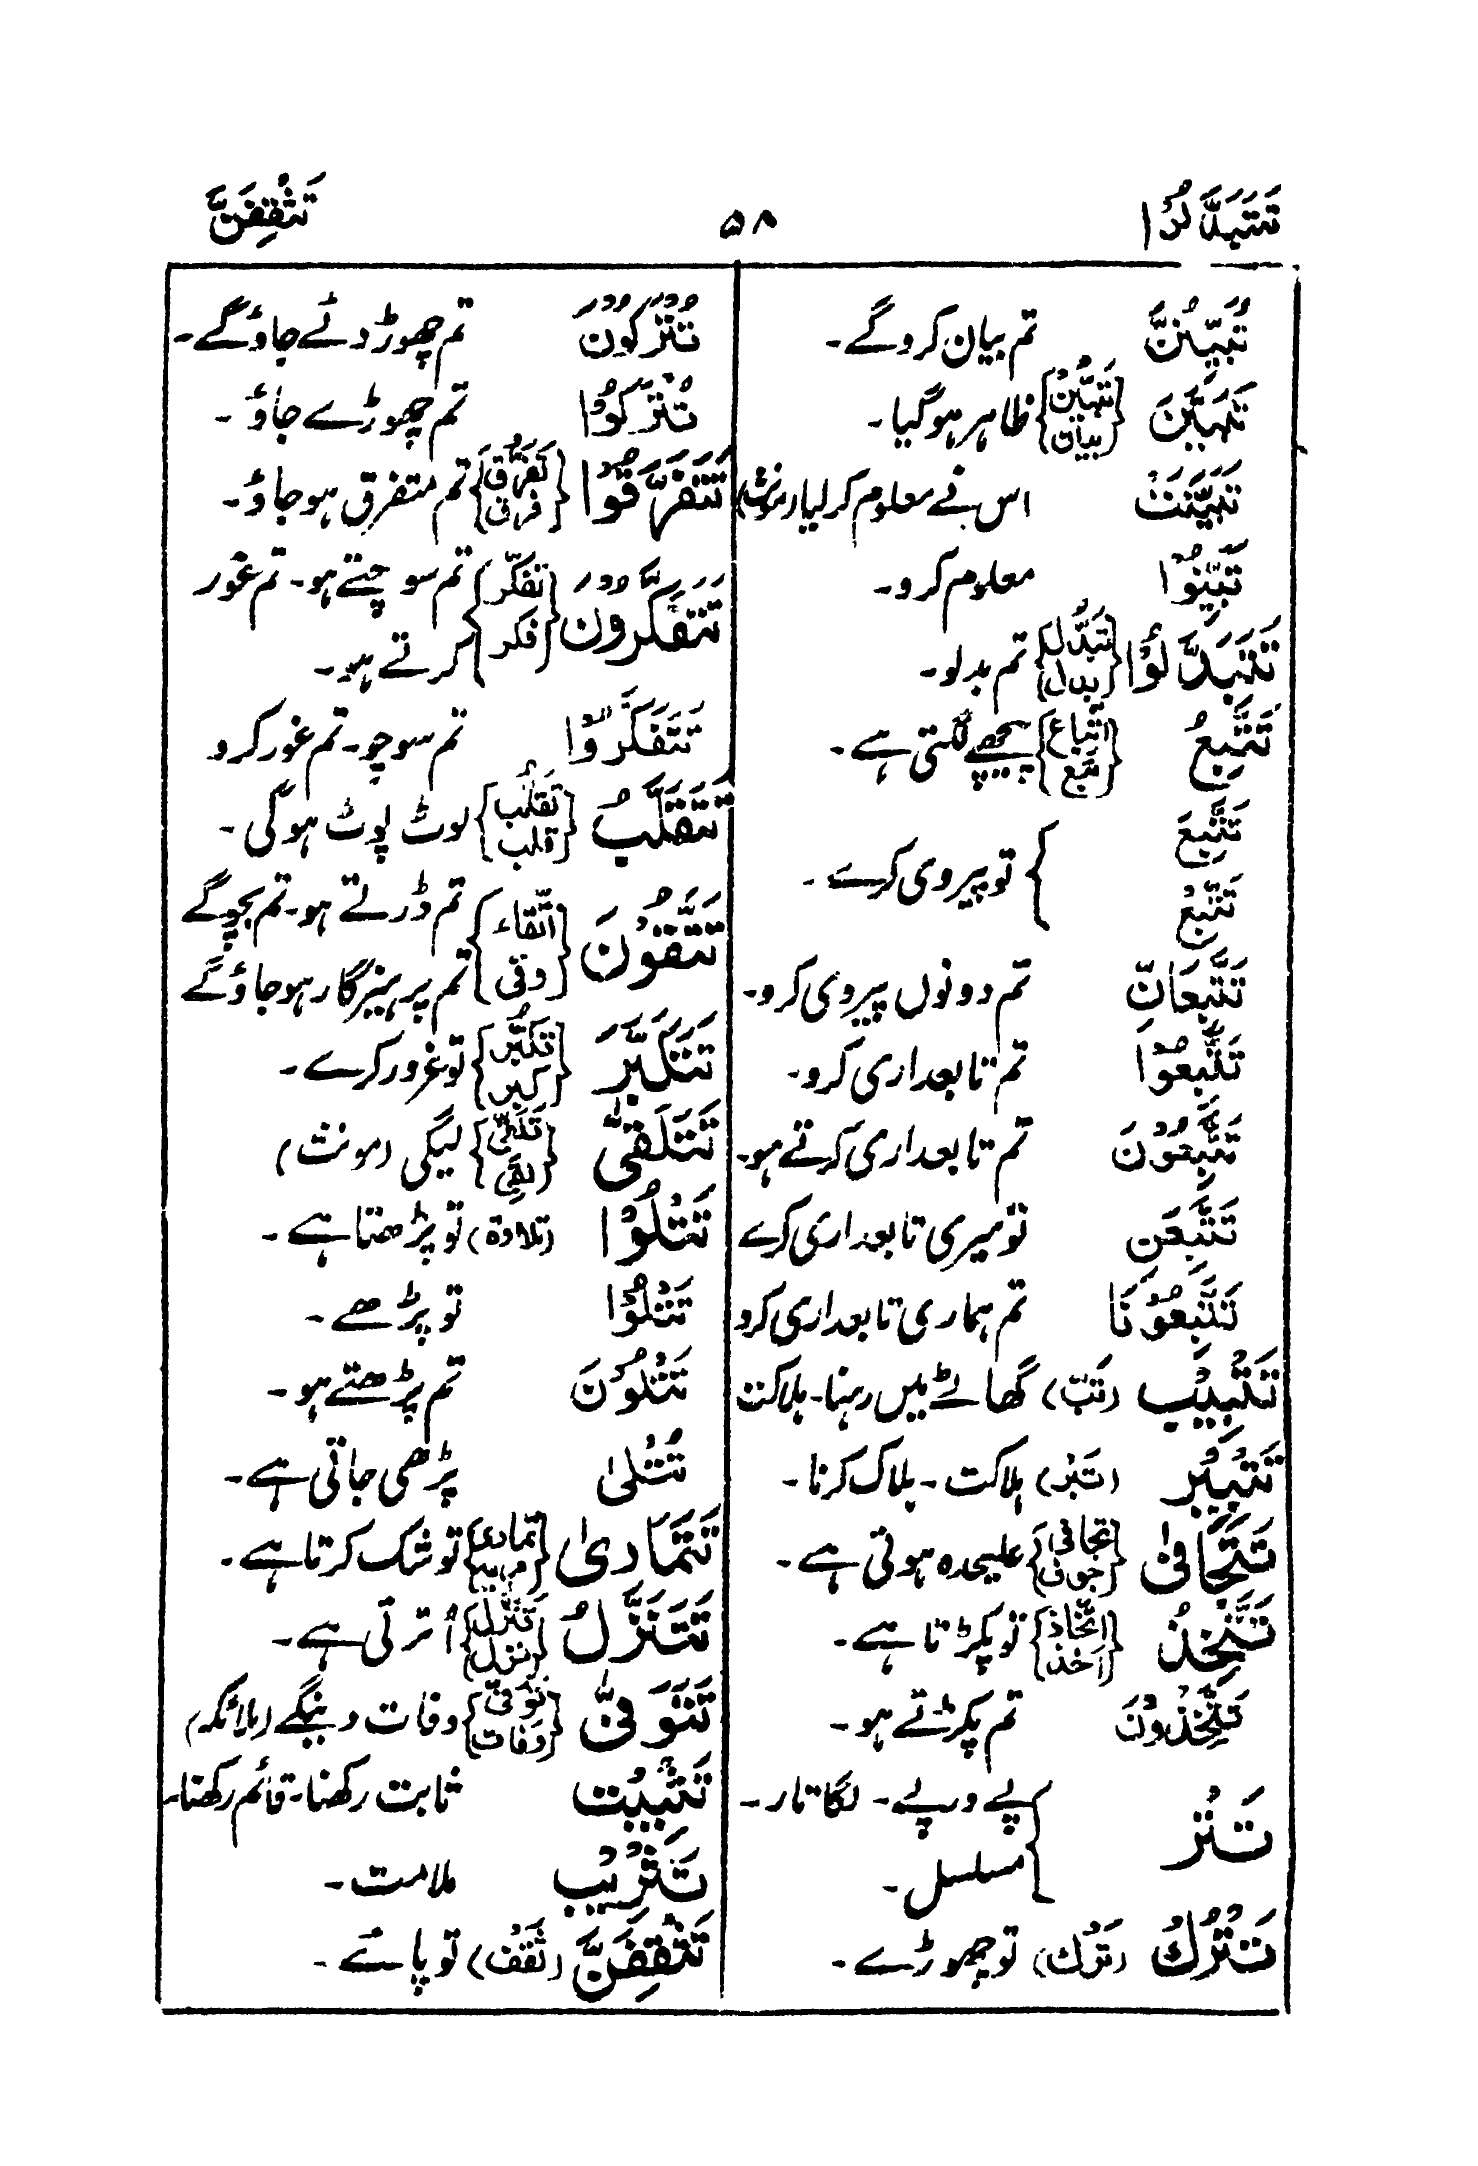 تَتَبَدَّلُوْا ۵۸ تَثْقِفَنَّ
تُبَيِّنُنَّ تم بیان کروگے۔
تَبَيَّنَ {تَبَيُّن بیان} ظاہر ہوگیا۔
تَبَيَّنَتْ اس نے معلوم کرلیا (مونث)
تَبَيَّنُوْا معلوم کرو۔
تَتَبَدَّلُوْا {تَبَدُّل بدل} تم بدلو۔
تَتَّبِعُ {اتّباع تبع} پیچھے لگتی ہے۔
تَتَّبِعَ
تَتَّبِعْ } تو پیروی کرے۔
تَتَّبِعَانِّ تم دونوں پیروی کرو۔
تَتَّبِعُوْا تم تابعداری کرو۔
تَتَّبِعُوْنَ تم تابعداری کرتے ہو۔
تَتَّبِعَنِ تو میری تابعداری کرے
تَتَّبِعُوْنَا تم ہماری تابعداری کرو
تَتْبِيْبٍ (تَبّ) گھاٹے میں رہنا۔ ہلاکت
تَتْبِيْر (تَبْر) ہلاکت ۔ ہلاک کرنا ۔
تَتَجَافٰى {تجافی جوف} علیحدہ ہوتی ہے ۔
تَتَّخِذُ {اتّخاذ اخذ} تو پکڑتا ہے ۔
تَتَّخِذُوْنَ تم پکڑتے ہو ۔
تَتْرَ } پے درپے ۔ لگاتار ۔
مسلسل ۔
تَتْرُكْ (ترك) تو چھوڑے ۔
تُتْرَكُوْنَ تم چھوڑ دئے جاؤگے ۔
تُتْرَكُوْا تم چھوڑے جاؤ ۔
تَتَفَرَّقُوْا {تفرّق فرق} تم متفرق ہوجاؤ ۔
تَتَفَكَّرُوْنَ {تفكّر فكر} تم سوچتے ہو۔ تم غور
کرتے ہو ۔
تَتَفَكَّرُوْا تم سوچو۔ تم غور کرو
تَتَقَلَّبُ {تقلّب قلب} لوٹ پوٹ ہوگی ۔
تَتَّقُوْنَ {اتّقاء وقی} تم ڈرتے ہو۔ تم بچوگے
تم پرہیزگار ہوجاؤگے
تَتَكَبَّرَ {تكبّر كبر} تو غرور کرے ۔
تَتَلَقّٰى {تلقّی لقی} لیگی (مونث)
تَتْلُوْا (تلاوة) تو پڑھتا ہے ۔
تَتْلُوَا تو پڑھے ۔
تَتْلُوْنَ تم پڑھتے ہو ۔
تُتْلٰى پڑھی جاتی ہے ۔
تَتَمَارٰى {تماری مریہ} تو شک کرتا ہے ۔
تَتَنَزَّلُ {تنزّل نزل} اُترتی ہے ۔
تَتَوَفّٰى {توفّی وفات} وفات دینگے (ملائکہ)
تَثْبِيْت ثابت رکھنا۔ قائم رکھنا۔
تَثْرِيْب ملامت ۔
تَثْقِفَنَّ (ثقف) تو پائے ۔